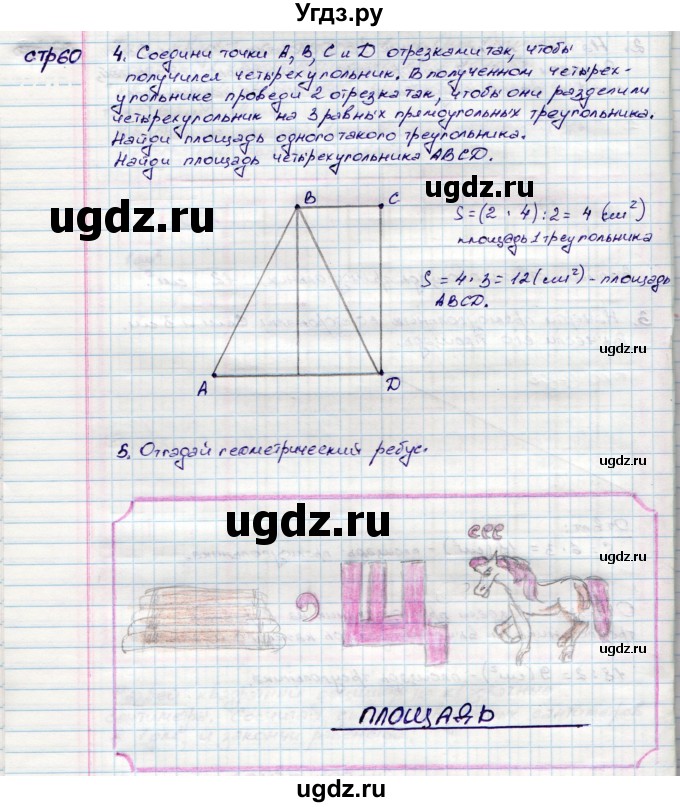 Угдз.ру
стр60
4. Соедини точки A, B, C и D отрезками так, чтобы
получился четырехугольник. В полученном четырех-
угольнике проведи 2 отрезка так, чтобы они разделили
четырехугольник на 3 равных прямоугольных треугольника.
Найди площадь одного такого треугольника.
Найди площадь четырехугольника ABCD.
ugdz.ru
ugdz.ru
B
C
S = (2 · 4) : 2 = 4 (см²)
площадь 1 треугольника
S = 4 · 3 = 12 (см²) - площадь
ABCD.
ugdz.ru
A
D
5. Отгадай геометрический ребус.
ugdz.ru
ugdz.ru
ссс
,
Щ
ugdz.ru
ПЛОЩАДЬ
ugdz.ru
ugdz.ru